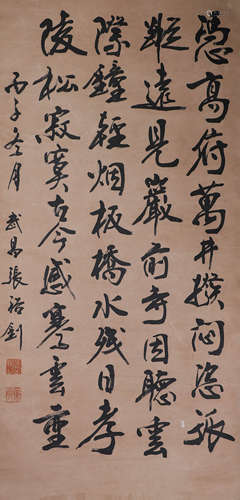 憑高俯萬井撥悶恣孤
蹤遠見巖前寺因聽雲
際鐘輕烟板橋水殘日孝
陵松寂寞古今感騫雲重
丙子冬月 武昌張裕釗